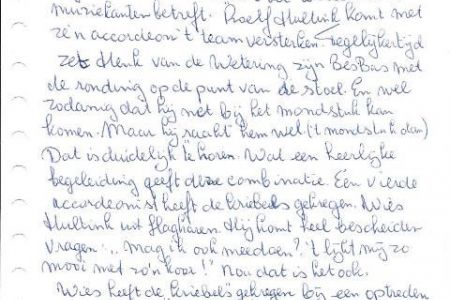 muziekanten betreft. Roelf Hultink komt met
ze'n accordeon 't team versterken. Tegelijkertijd
zet Henk van de Wetering zijn BesBas met
de ronding op de punt van de stoel. En wel
zodanig dat hij net bij het mondstuk kan
komen. Maar hij raakt hem wel ('t mondstuk dan)
Dat is duidelijk te horen. Wat een heerlijke
begeleiding geeft deze combinatie. Een vierde
accordeonist heeft de kriebels gekregen. Wies
Hultink uit Slagharen. Hij komt heel bescheiden
vragen: "mag ik ook meedoen? 't lijkt mij zo
mooi met zo'n koor!" Nou dat is het ook.
Wies heeft de "kriebels" gekregen bij een optreden